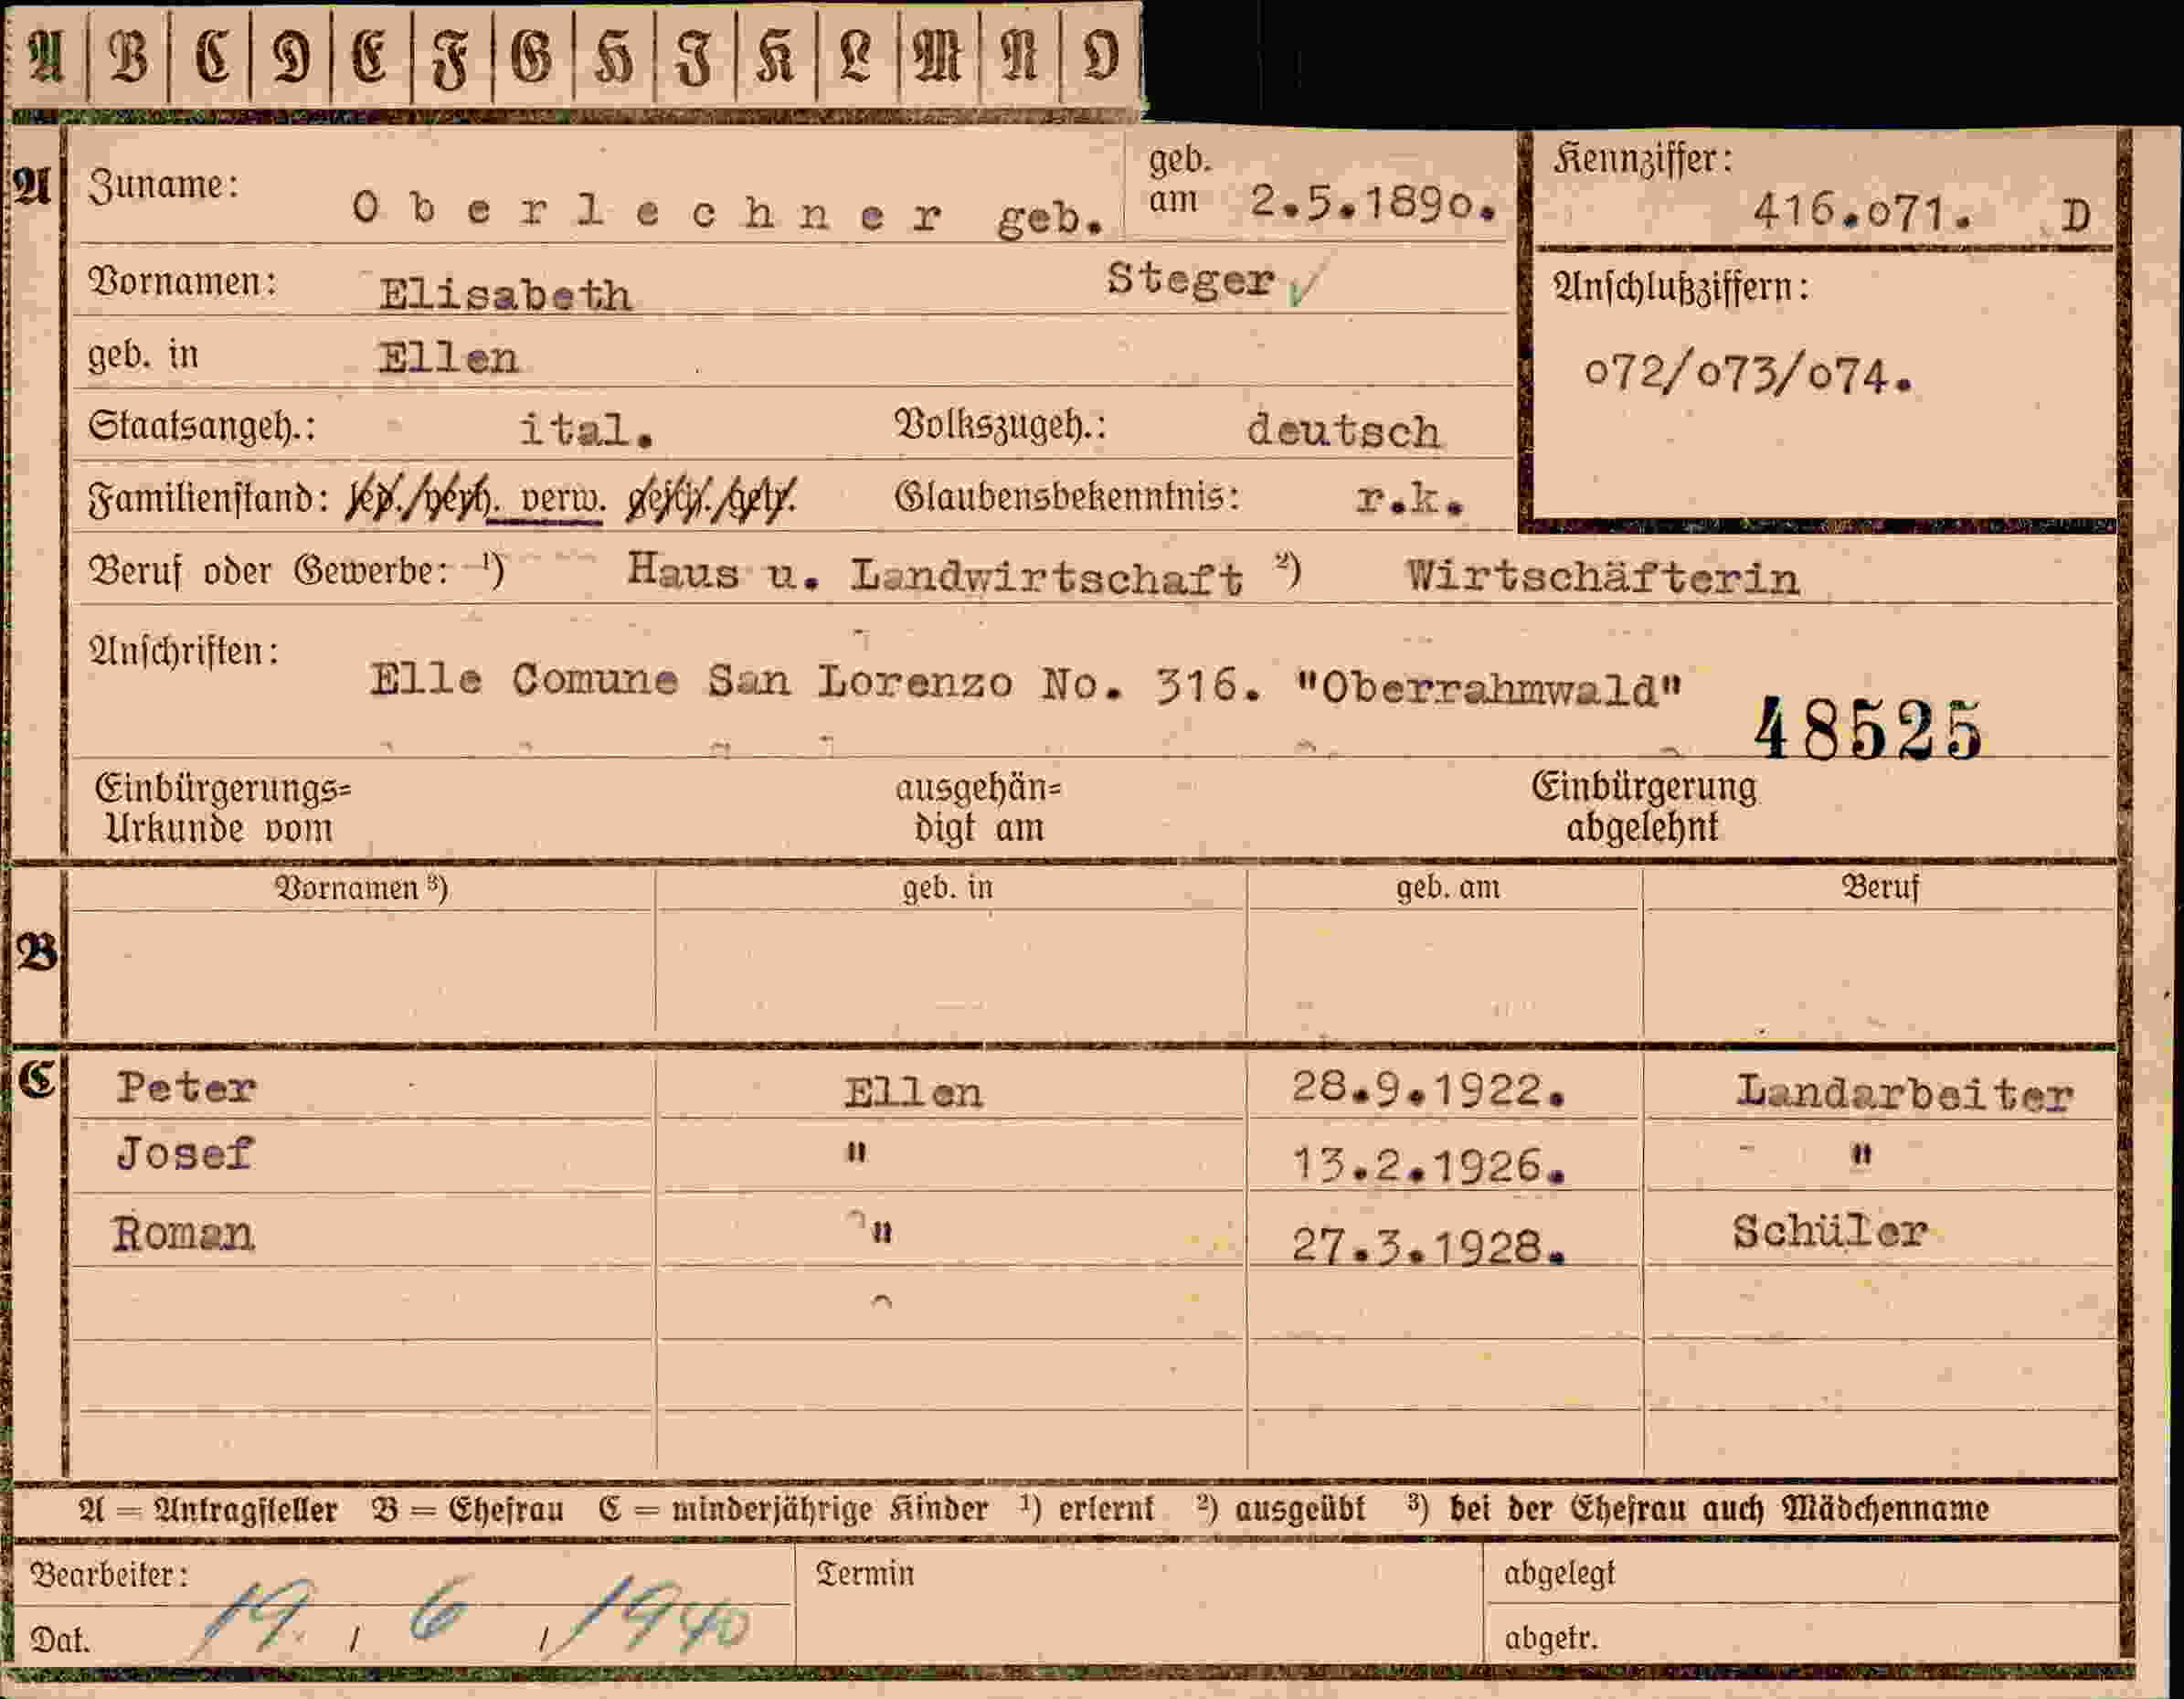 A B C D E F G H I K L M N O
A Zuname: Oberlechner geb. geb. am 2.5.1890. Kennziffer: 416.071. D
Vornamen: Elisabeth Steger ✓ Anschlußziffern:
geb. in Ellen 072/073/074.
Staatsangeh.: ital. Volkszugeh.: deutsch
Familienstand: led./verh. verw. gesch./getr. Glaubensbekenntnis: r.k.
Beruf oder Gewerbe: ¹) Haus u. Landwirtschaft ²) Wirtschäfterin
Anschriften: Elle Comune San Lorenzo No. 316. "Oberrahmwald"
48525
Einbürgerungs= ausgehän= Einbürgerung
Urkunde vom digt am abgelehnt
Vornamen ³) geb. in geb. am Beruf
B
C Peter Ellen 28.9.1922. Landarbeiter
Josef " 13.2.1926. "
Roman " 27.3.1928. Schüler
A = Antragsteller B = Ehefrau C = minderjährige Kinder ¹) erlernt ²) ausgeübt ³) bei der Ehefrau auch Mädchenname
Bearbeiter: Termin abgelegt
Dat. 19. / 6 / 1940 abgetr.